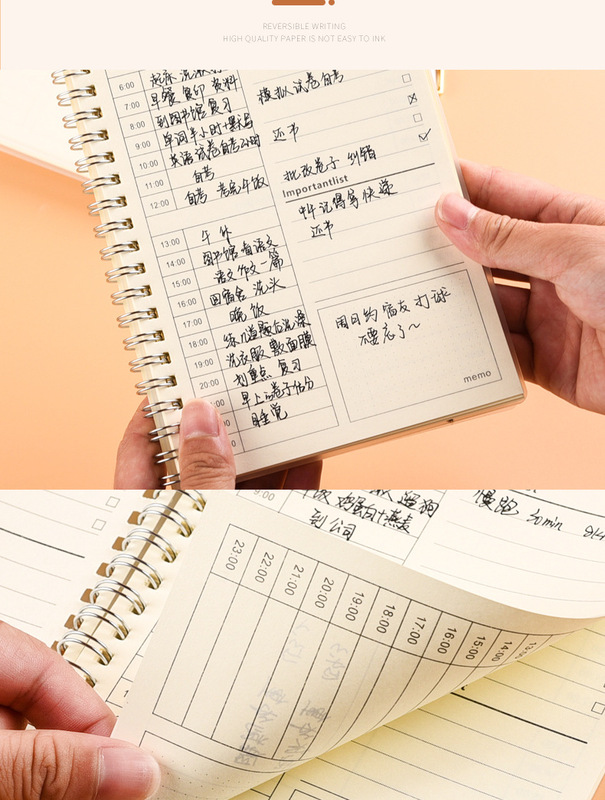 REVERSIBLE WRITING
HIGH QUALITY PAPER IS NOT EASY TO INK
6:00 起床 洗漱
7:00 早餐 复印 资料
8:00 到图书馆 复习
9:00 单词半小时+默写
10:00 英语试卷自考2小时
11:00 自考
12:00 自考 考完午饭
13:00 午休
14:00 图书馆 看语文
15:00 语文作文一篇
16:00 回宿舍 洗头
17:00 晚饭
18:00 练几道题后洗澡
19:00 洗衣服 敷面膜
20:00 划重点 复习
早上的卷子估分
睡觉
模拟试卷自考
还书
批改卷子 纠错
Importantlist
中午记得拿快递
还书
周日约宿友打球
不要忘了~
memo
9:00
遛狗
鸡蛋白+燕麦
到公司
慢跑 30min
23:00
22:00
21:00
20:00
19:00
18:00
17:00
16:00
15:00
14:00
13:00